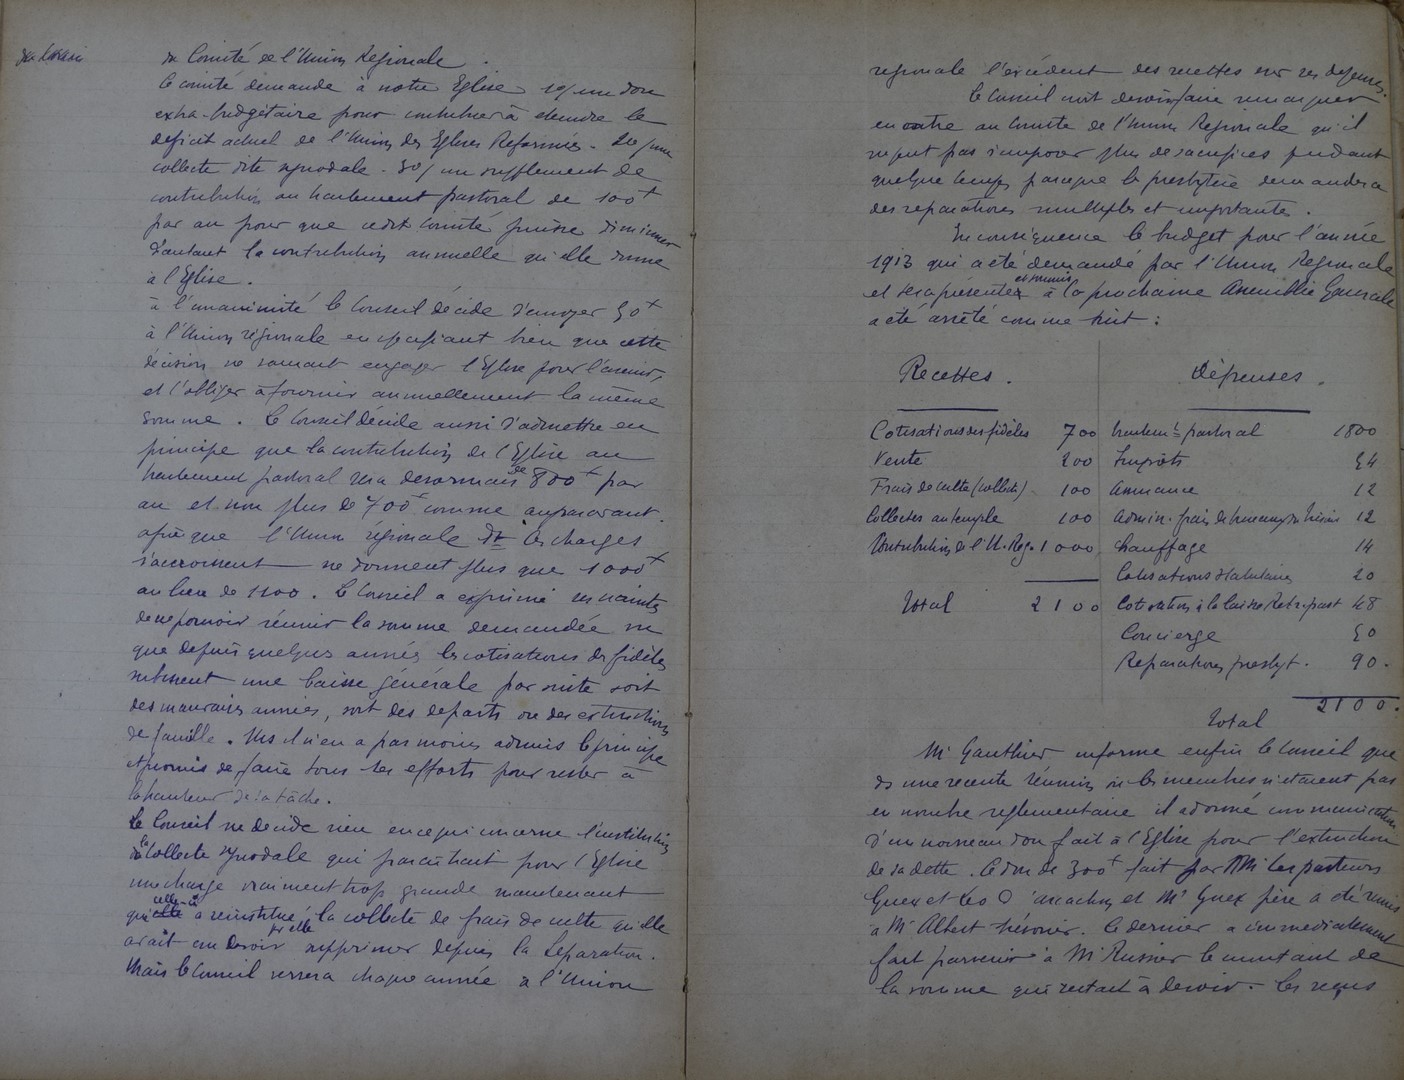 du Comité de l'Union Régionale.
Le comité demande à notre Eglise 1o/ un don
extra-budgétaire pour contribuer à éteindre le
déficit actuel de l'Union des Eglises Réformées - 2o/ une
collecte dite synodale - 3o/ un supplément de
contribution au traitement pastoral de 100f
par an pour que ledit Comité puisse diminuer
d'autant la contribution annuelle qu'elle donne
à l'Eglise.
à l'unanimité le Conseil décide d'envoyer 50f
à l'Union régionale en spécifiant bien que cette
décision ne saurait engager l'Eglise pour l'avenir,
et l'obliger à fournir annuellement la même
somme. Le Conseil décide aussi d'admettre en
principe que la contribution de l'Eglise au
traitement pastoral sera désormais de 800f par
an et non plus de 700f comme auparavant.
afin que l'Union régionale dt les charges
s'accroissent - ne donnent plus que 1000f
au lieu de 1100. Le Conseil a exprimé ses craintes
de ne pouvoir réunir la somme demandée vu
que depuis quelques années les cotisations des fidèles
subissent une baisse générale par suite soit
des mauvaises années, soit des départs ou des extinctions
de famille. Mais il n'en a pas moins admis le principe
et promis de faire tous ses efforts pour rester à
la hauteur de sa tâche.
Le Conseil ne décide rien en ce qui concerne l'institution
de la Collecte synodale qui paraîtrait pour l'Eglise
une charge vraiment trop grande maintenant
que celle-ci a réinstitué la collecte de frais de culte qu'elle
avait cru devoir supprimer depuis la Séparation.
Mais le Conseil versera chaque année à l'Union
régionale l'excédent des recettes sur ses dépenses.
Le Conseil croit devoir faire remarquer
en outre au Comité de l'Union Régionale qu'il
ne peut pas s'imposer plus de sacrifices pendant
quelque temps parce que le presbytère demandera
des réparations multiples et importantes.
En conséquence le budget pour l'année
1913 qui a été demandé par l'Union Régionale
et sera présenté et soumis à la prochaine Assemblée Générale
a été arrêté comme suit :
Recettes.
Cotisations des fidèles 700
Vente 200
Frais de culte (collecte) 100
Collectes au temple 100
Contribution de l'U. Rég. 1000
Total 2100
Dépenses.
traitemt pastoral 1800
Impôts 54
Assurance 12
Admin. frais de bureau du trésor 12
Chauffage 14
Cotisations statutaires 20
Cotisations à la Caisse Retr. past 48
Concierge 50
Réparations presbyt. 90.
Total 2100.
Mr Gauthier informe enfin le Conseil que
ds une récente réunion où les membres n'étaient pas
en nombre réglementaire il a donné communication
d'un nouveau don fait à l'Eglise pour l'extinction
de sa dette. Ce don de 300f fait par MM. les pasteurs
Guex et et Mr Guex père a été remis
à Mr Albert trésorier. Ce dernier a immédiatement
fait parvenir à Mr Russier le montant de
la somme qui restait à devoir. - Les reçus